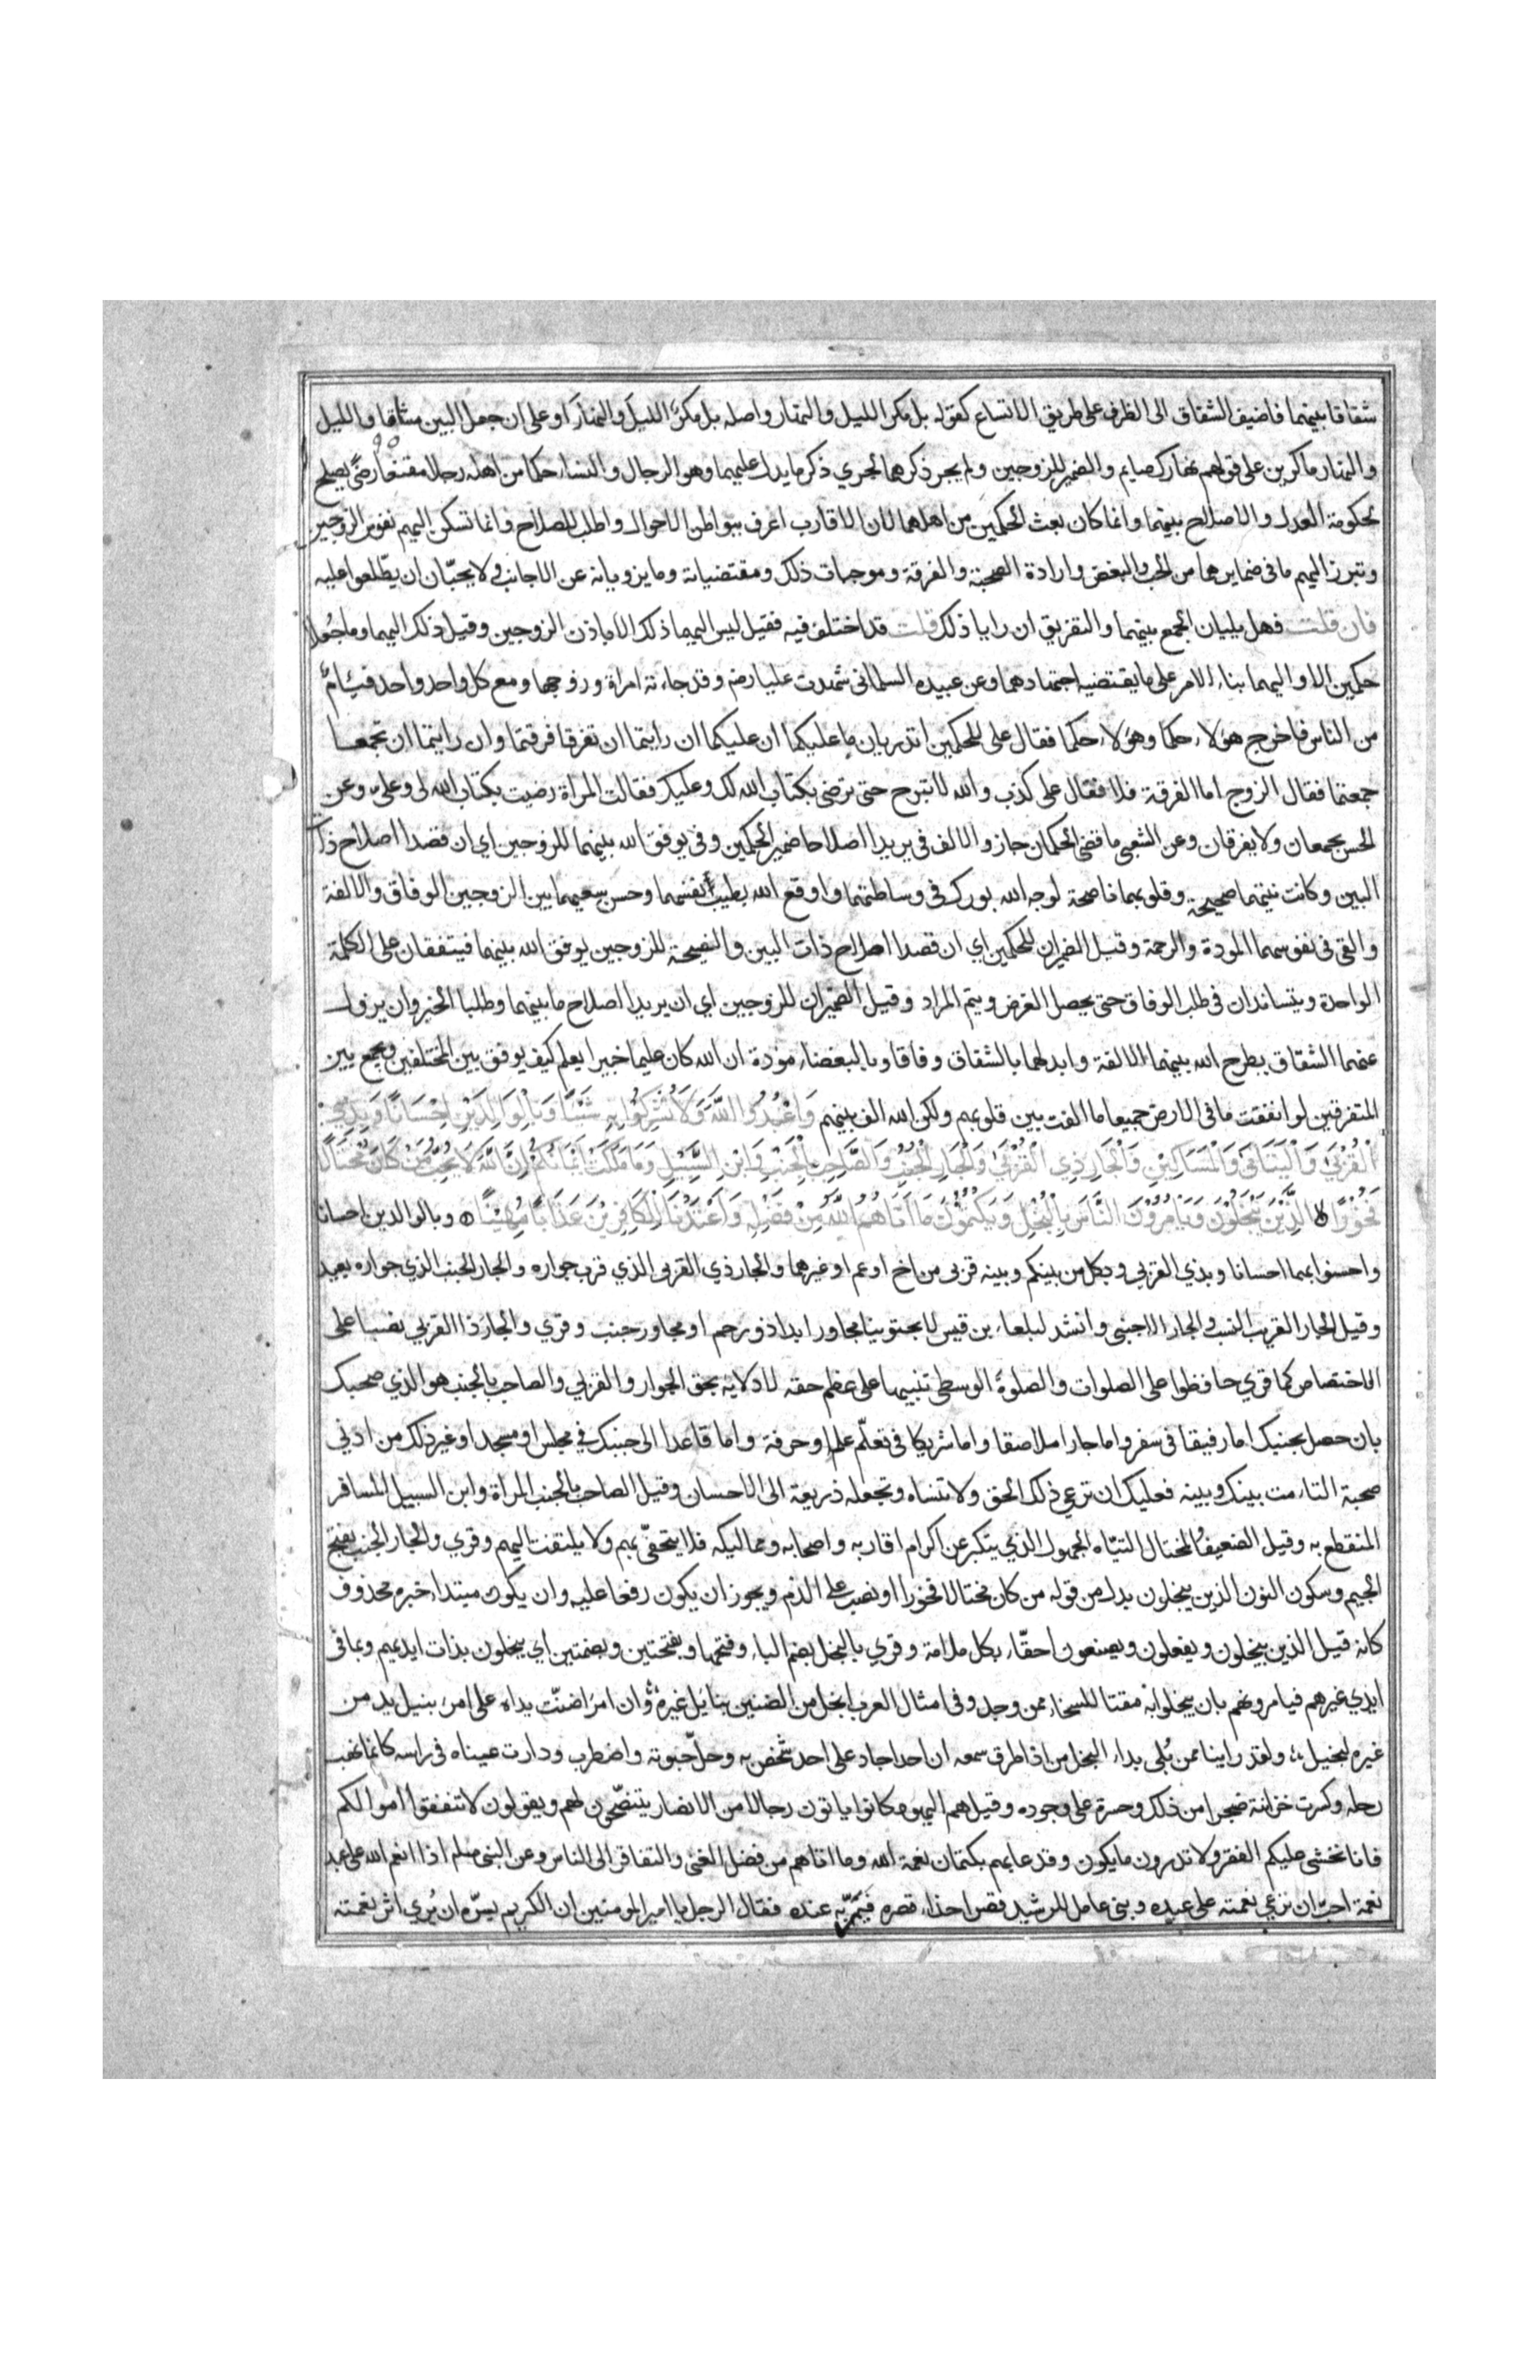 شقاقا بينهما فاضيف الشقاق الى الظرف على طريق الاتساع كقوله بل مكر الليل والنهار واصله بل مكرٌ الليلَ والنهارَ او على ان جعل البين مشاقا والليل
والنهار ماكرين على قولهم نهارك صايم والضمير للزوجين ولم يجر ذكرهما لجري ذكر ما يدل عليهما وهو الرجال والنساء حكما من اهله رجلا مقنعا رضيً يصلح
لحكومة العدل والاصلاح بينهما وانما كان بعث الحكمين من اهلهما لان الاقارب اعرف ببواطن الاحوال واطلب للصلاح وانما تسكن اليهم نفوس الزوجين
وتبرز اليهم ما في ضمايرهما من الحب والبغض وارادة الصحبة والفرقة وموجبات ذلك ومقتضياته وما يزويانه عن الاجانب ولا يحبّان ان يطّلعوا عليه
فان قلت فهل يليان الجمع بينهما والتفريق ان رايا ذلك قلت قد اختلف فيه فقيل ليس اليهما ذلك الا باذن الزوجين وقيل ذلك اليهما وما جُعلا
حكمين الا واليهما بناء الامر على ما يقتضيه اجتهادهما وعن عبيده السلماني شهدت عليا رضه وقد جاءته امراة وزوجها ومع كل واحد واحد فئام
من الناس فاخرج هؤلاء حكما وهؤلاء حكما فقال على للحكمين اتدريان ما عليكما ان عليكما ان رايتما ان تفرقا فرقتما وان رايتما ان تجمعا
جمعتما فقال الزوج اما الفرقة فلا فقال على كذبت والله لا تبرح حتى ترضى بكتاب الله لك وعليك فقالت المراة رضيت بكتاب الله لى وعلىّ وعن
الحسن يجمعان ولا يفرقان وعن الشعبى ما قضى الحكمان جاز والالف فى يريدا اصلاحا ضمير الحكمين وفى يوفق الله بينهما للزوجين اي ان قصدا اصلاح ذات
البين وكانت نيتهما صحيحة وقلوبهما ناصحة لوجه الله بورك فى وساطتهما واوقع الله بطيب انفسهما وحسن سعيهما بين الزوجين الوفاق والالفة
والقى فى نفوسهما المودة والرحمة وقيل الضميران للحكمين اي ان قصدا اصلاح ذات البين والنصيحة للزوجين يوفق الله بينهما فيتفقان على الكلمة
الواحدة ويتساندان فى طلب الوفاق حتى يحصل الغرض ويتم المراد وقيل الضميران للزوجين اي ان يريدا اصلاح ما بينهما وطلبا الخير وان يزول
عنهما الشقاق يطرح الله بينهما الالفة وابدلهما بالشقاق وفاقا وبالبغضاء مودة ان الله كان عليما خبيرا يعلم كيف يوفق بين المختلفين ويجمع بين
المتفرقين لو انفقت ما فى الارض جميعا ما الفت بين قلوبهم ولكن الله الف بينهم وَاعْبُدُوا اللَّهَ وَلَا تُشْرِكُوا بِهِ شَيْئًا وَبِالْوَالِدَيْنِ اِحْسَانًا وَبِذِي
الْقُرْبَى وَالْيَتَامَى وَالْمَسَاكِيْنِ وَالْجَارِ ذِي الْقُرْبَى وَالْجَارِ الْجُنُبِ وَالصَّاحِبِ بِالْجَنْبِ وَابْنِ السَّبِيْلِ وَمَا مَلَكَتْ اَيْمَانُكُمْ اِنَّ اللَّهَ لَا يُحِبُّ مَنْ كَانَ مُخْتَالًا
فَخُوْرًا ۝ الَّذِيْنَ يَبْخَلُوْنَ وَيَاْمُرُوْنَ النَّاسَ بِالْبُخْلِ وَيَكْتُمُوْنَ مَا آتَاهُمُ اللَّهُ مِنْ فَضْلِهِ وَاَعْتَدْنَا لِلْكَافِرِيْنَ عَذَابًا مُهِيْنًا ۝ وبالوالدين احسانا
واحسنوا بهما احسانا وبذي القربي وبكل من بينكم وبينه قربى من اخ او عم او غيرهما والجار ذي القربى الذي قرب جواره والجار الجنب الذي جواره بعيد
وقيل الجار القريب النسيب والجار الاجنبى وانشد لبلعاء بن قيس لا يجتوينا مجاور ابدا ذو رحم او مجاور جنب وقري والجار ذا القربي نصبا على
الاختصاص كما قري حافظوا على الصلوات والصلوةَ الوسطى تنبيها على عظم حقه لادلايه بحق الجوار والقربي والصاحب بالجنب هو الذي صحبك
بان حصل بجنبك اما رفيقا فى سفر واما جارا ملاصقا واما شريكا فى تعلّم علم او حرفة واما قاعدا الى جنبك فى مجلس او مسجد او غير ذلك من ادنى
صحبة التامت بينك وبينه فعليك ان ترعي ذلك الحق ولا تنساه وتجعله ذريعة الى الاحسان وقيل الصاحب بالجنب المراة وابن السبيل المسافر
المنقطع به وقيل الضعيف المختال التيّاه الجهول الذي يتكبر عن اكرام اقاربه واصحابه ومماليكه فلا يتحفّى بهم ولا يلتفت اليهم وقري والجار الجنب بفتح
الجيم وسكون النون الذين يبخلون بدل من قوله من كان مختالا فخورا او نصب على الذم ويجوز ان يكون رفعا عليه وان يكون مبتداء خبره محذوف
كانه قيل الذين يبخلون ويفعلون ويصنعون احقّاء بكل ملامة وقري بالبخل بضم الباء وفتحها وبفتحتين وبضمتين اي يبخلون بذات ايديهم وبما فى
ايدي غيرهم فيامرونهم بان يبخلوا به مقتا للسخاء ممن وجد وفى امثال العرب ابخل من الضنين بنايل غيره وان امرَاً ضنّت يداه على امرئ بنيل يد من
غيره لبخيل ولقد راينا ممن بُلى بداء البخل من اذا طرق سمعه ان احدا جاد على احد شخص به وحلّ حبوته واضطرب ودارت عيناه فى راسه كانما نهب
رحله وكسرت خزانته ضجرا من ذلك وحسرة على وجوده وقيل هم اليهود كانوا ياتون رجالا من الانصار يتنصّحون لهم ويقولون لا تنفقوا اموالكم
فانا نخشى عليكم الفقر ولا تدرون ما يكون وقد عابهم بكتمان نعمة الله وما اتاهم من فضل الغنى والتفاقر الى الناس وعن النبى صلم اذا انعم الله على عبد
نعمة احبّ ان تري نعمته على عبده وبنى عامل للرشيد قصرا حذاء قصره فنمّ به عنده فقال الرجل يا امير المومنين ان الكريم يسّره ان يُري اثر نعمته